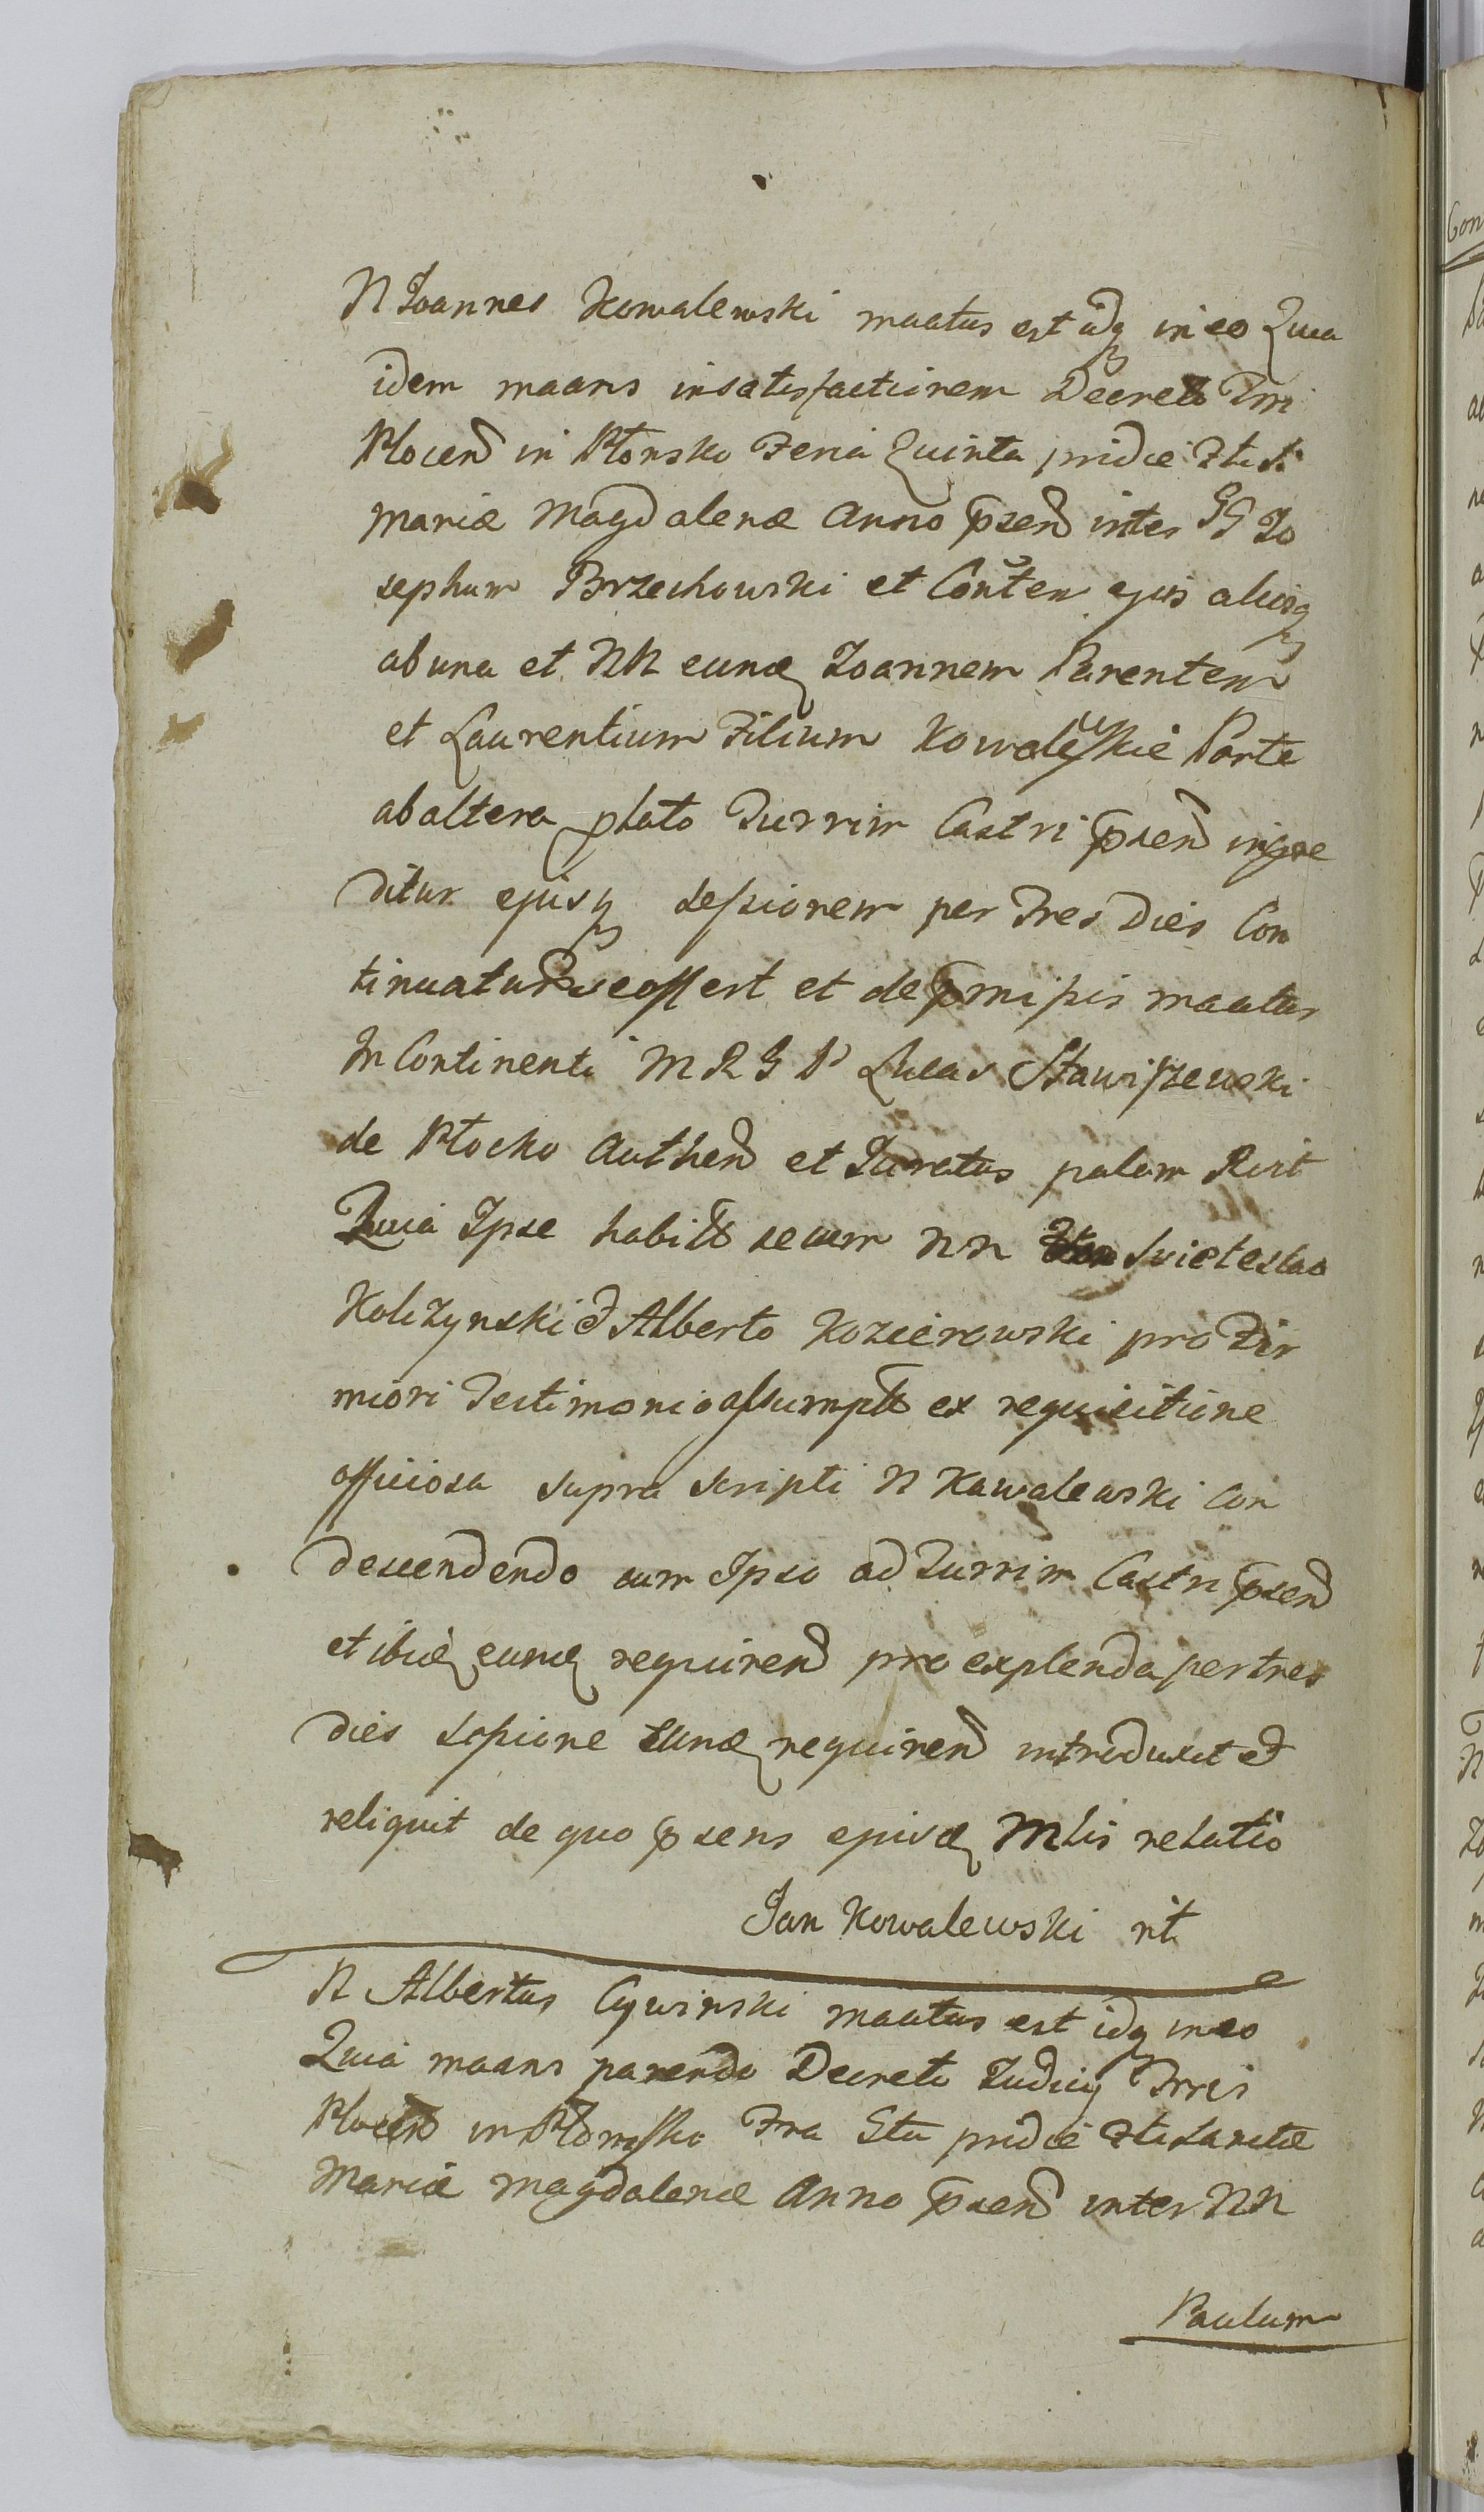 N Joannes Kowalewski maatus est idq in eo Quia
idem maans in satisfactionem Decreto Trri
Plocen in Płonsko Feria Quinta pridie Fti S
Mariæ Magdalenæ Anno psen inter GG Jo
sephum Brzechowski et Conten ejus aliisq
ab una et NN eunq Joannem Parentem
et Laurentium Filium Kowalewskie Parte
ab altera plato Turrim Castri psen ingre
ditur ejusq sessionem per Tres Dies Con
tinuatur se offert et de pmissis maatus
In Continenti M R G D Lucas Stawiszewski
de Płocko Authen et Juratus palam Rcit
Quia Ipse habitt secum NN Swietoslao
Kolczynski et Alberto Kozierowski pro Fir
miori Testimonio assumptt ex requisitione
officiosa supra scripti N Kawalewski con
descendendo cum Ipso ad Turrim Castri psen
et ibiq eunq requiren pro explenda per tres
dies sessione eunq requiren introduxit et
reliquit de quo psens ejusq Mlis relatio
Jan Kowalewski
N Albertus Cywinski maatus est idq in eo
Quia maans parendo Decreto Judicy Trris
Plocen in Płonsko Fria 5ta pridie Fti Sanctæ
Mariæ Magdalenæ Anno psen inter NN
Paulum